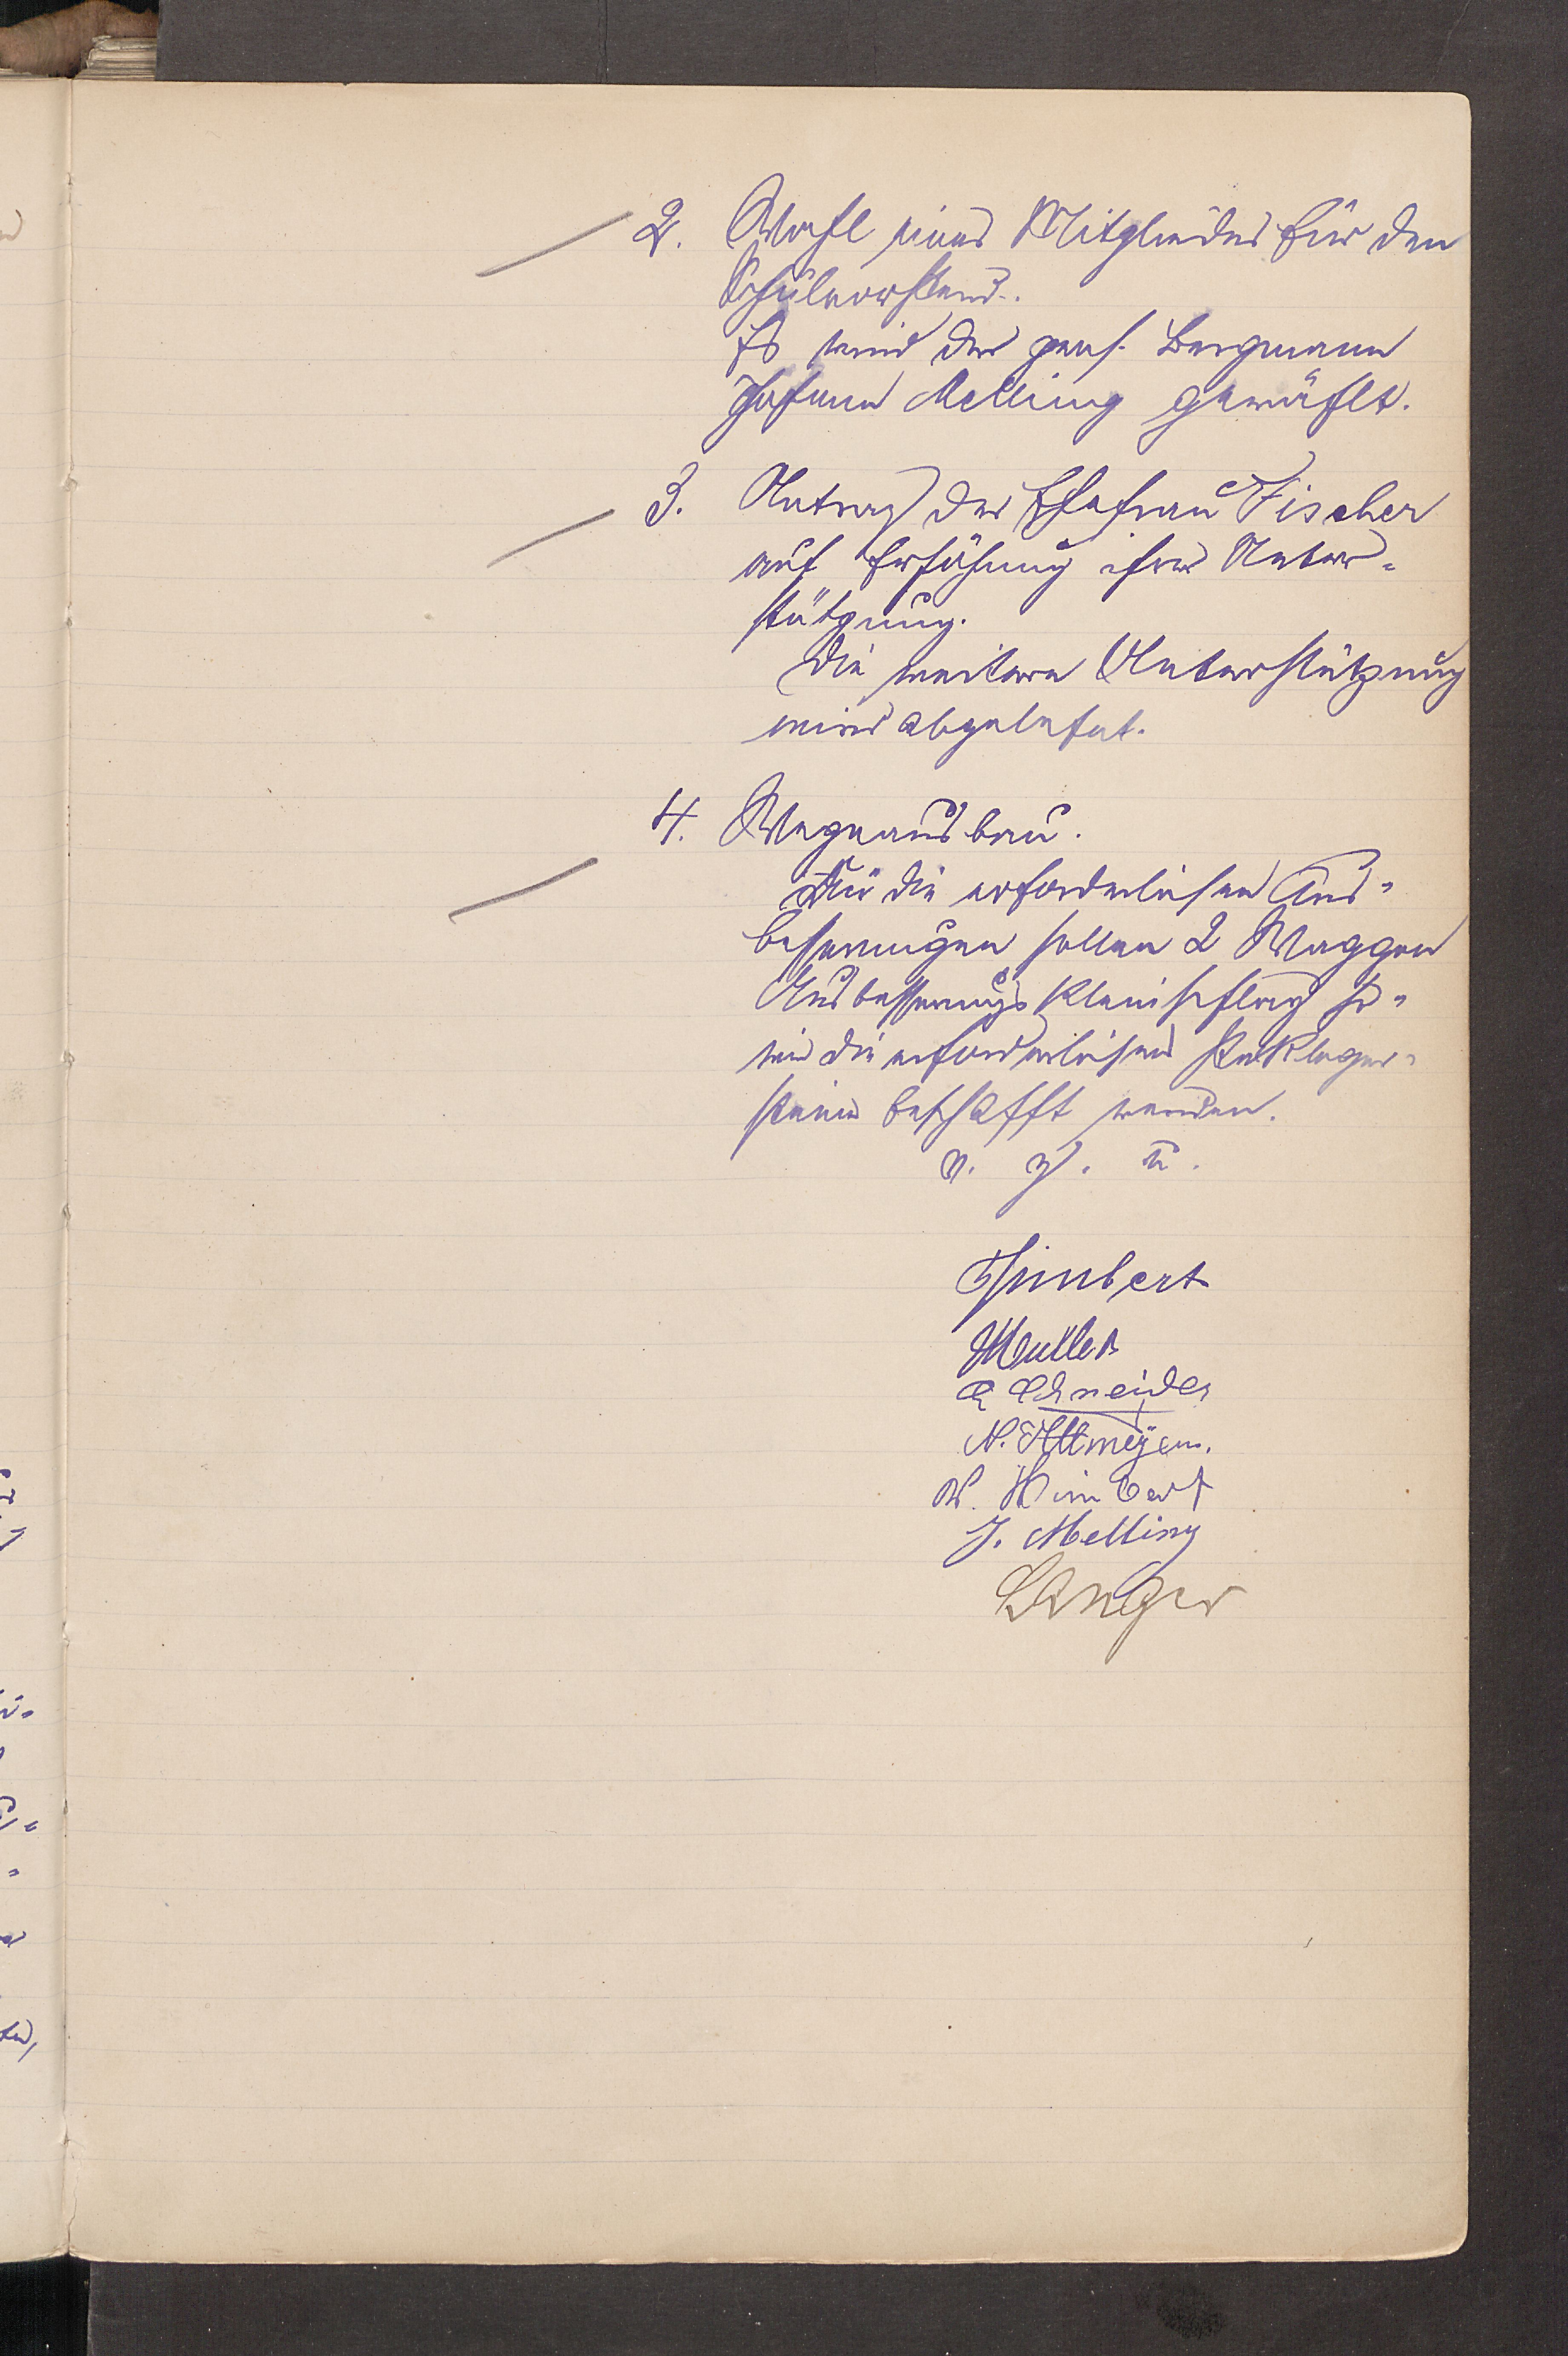 2. Wahl eines Mitgliedes für den
Schulvorstand.
Es wird der pens. Bergmann
Johann Melling gewählt.
3. Antrag der Ehefrau Fischer
auf Erhöhung ihrer Unter-
stützung.
Die weitere Unterstützung
wird abgelehnt.
4. Wegeausbau.
Für die erforderlichen Aus-
besserungen sollen 2 Waggon
Ausbesserungs Kleinschlag so-
wie die erforderlichen Packlager-
steine beschafft werden.
v. g. u.
Himbert
Müller
Schneider
N. Altmeyer.
W. Himbert
J. Melling
Langer